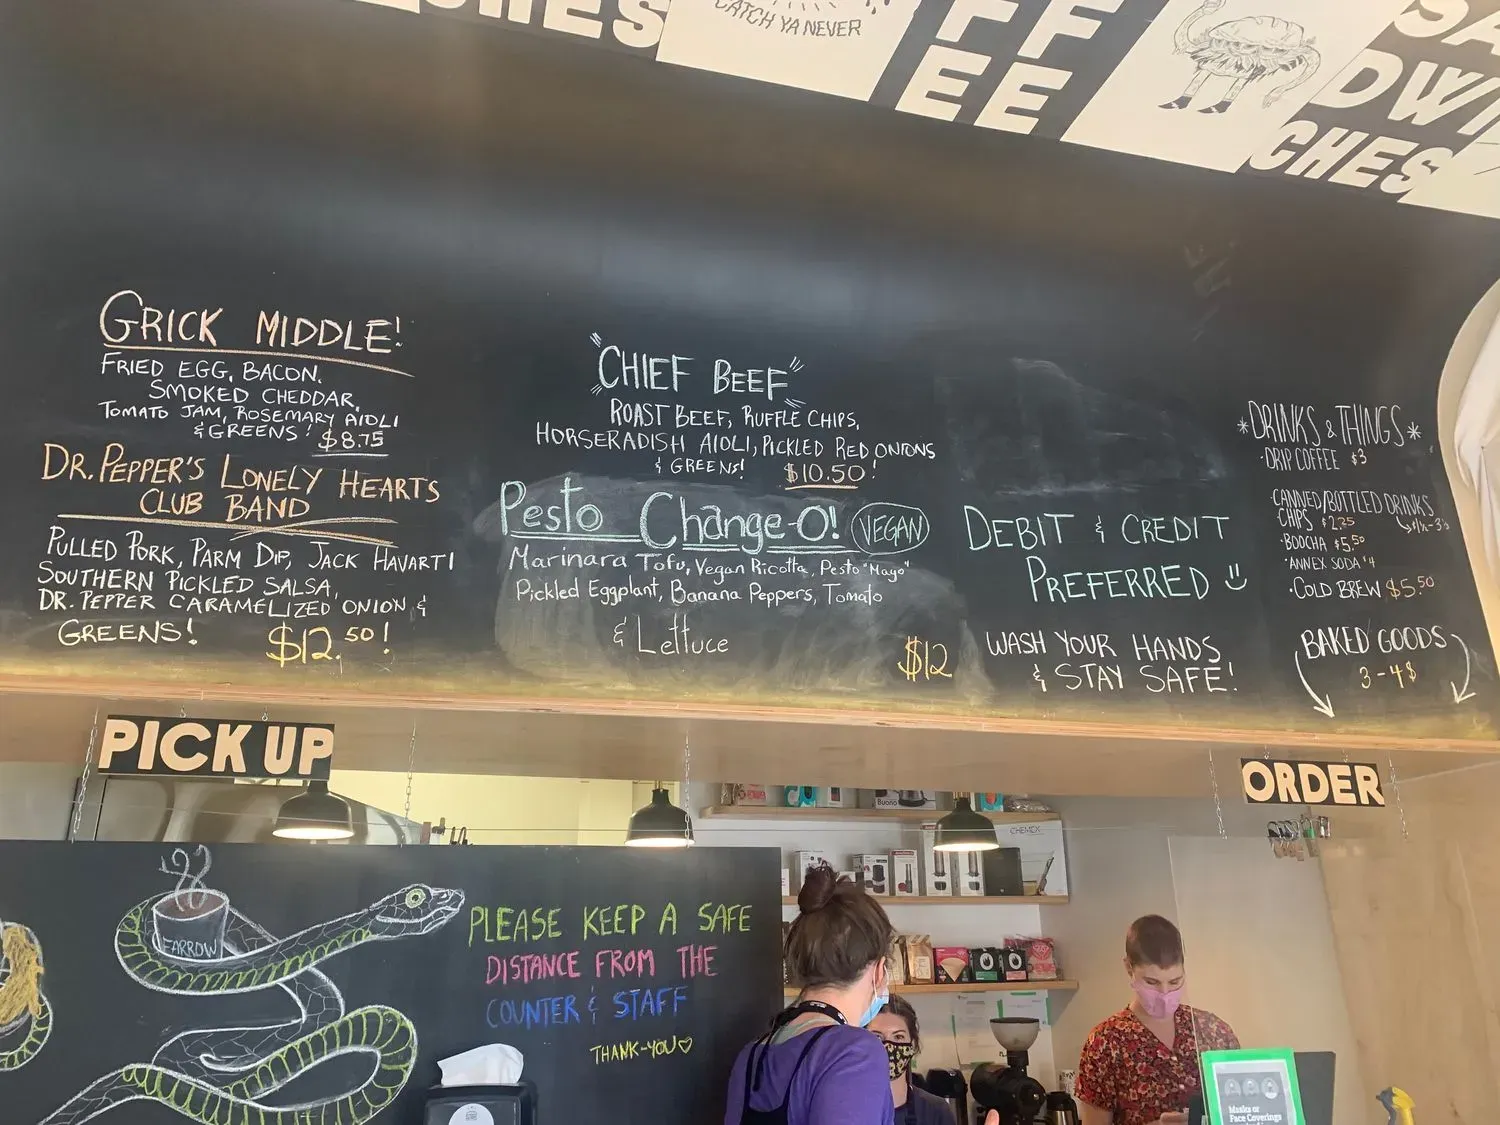 CHES
CATCH YA NEVER
FF
EE
SA
DWI
CHES
GRICK MIDDLE!
FRIED EGG, BACON,
SMOKED CHEDDAR,
TOMATO JAM, ROSEMARY AIOLI
& GREENS! $8.75
DR. PEPPER'S LONELY HEARTS
CLUB BAND
PULLED PORK, PARM DIP, JACK HAVARTI
SOUTHERN PICKLED SALSA,
DR. PEPPER CARAMELIZED ONION &
GREENS! $12.50!
"CHIEF BEEF"
ROAST BEEF, RUFFLE CHIPS,
HORSERADISH AIOLI, PICKLED RED ONIONS
& GREENS! $10.50!
Pesto Change-O! VEGAN
Marinara Tofu, Vegan Ricotta, Pesto "Mayo"
Pickled Eggplant, Banana Peppers, Tomato
& Lettuce
$12
DEBIT & CREDIT
PREFERRED
WASH YOUR HANDS
& STAY SAFE!
*DRINKS & THINGS*
·DRIP COFFEE $3
·CANNED/BOTTLED DRINKS
CHIPS $2.25
·BOOCHA $5.50
·ANNEX SODA $4
·COLD BREW $5.50
BAKED GOODS
3-4$
PICK UP
ORDER
FARROW
PLEASE KEEP A SAFE
DISTANCE FROM THE
COUNTER & STAFF
THANK-YOU♡
Buono
CHEMEX
Masks or
Face Coverings